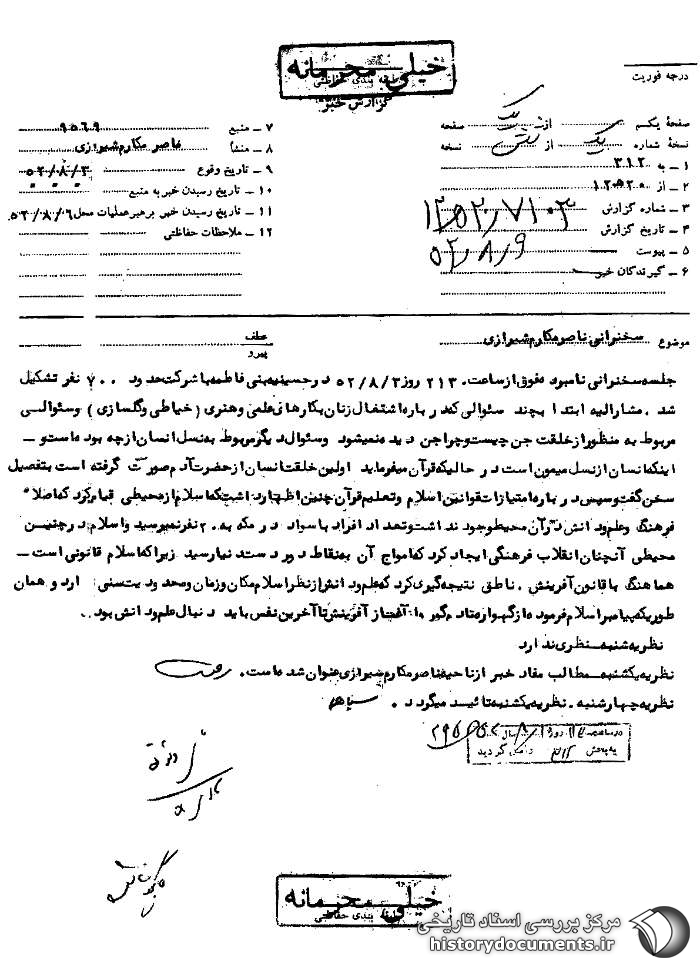 خیلی محرمانه
طبقه بندی حفاظتی
گزارش خبر
درجه فوریت
صفحهٔ یکم از یک صفحه
نسخهٔ شماره یک از نسخه
۱ – به ۳۱۲
۲ – از ۱۲ه۲۰
۳ – شماره گزارش ۱۲ه۲۰/۷۱۰۳
۴ – تاریخ گزارش ۵۲/۸/۹
۵ – پیوست
۶ – گیرندگان خبر
۷ – منبع ۹۵۶۹
۸ – منشأ ناصر مکارم شیرازی
۹ – تاریخ وقوع ۵۲/۸/۳
۱۰ – تاریخ رسیدن خبر به منبع
۱۱ – تاریخ رسیدن خبر برهبر عملیات محل ۵۲/۸/۶
۱۲ – ملاحظات حفاظتی
موضوع سخنرانی ناصر مکارم شیرازی
عطف
پیرو
جلسه سخنرانی نامبرده فوق از ساعت ۲۱۳ روز ۵۲/۸/۳ در حسینیه بنی فاطمه با شرکت حدود ۷۰۰ نفر تشکیل
شد. مشارالیه ابتدا بچند سئوالی که در باره اشتغال زنان بکارهای علمی و هنری (خیاطی و گلسازی) و سئوالی
مربوط به منظور از خلقت جن چیست و چرا جن دیده نمیشود و سئوال دیگر مربوط به نسل انسان از چه بوده است و –
اینکه انسان از نسل میمون است در حالیکه قرآن میفرماید اولین خلقت انسان از حضرت آدم صورت گرفته است بتفصیل
سخن گفت و سپس در باره امتیازات قوانین اسلام و تعلیم قرآن چنین اظهار داشت که اسلام از محیطی قیام کرد که اصلا
فرهنگ و علم و دانش در آن محیط وجود نداشت و تعداد افراد با سواد در مکه به ۲۰ نفر نمیرسید و اسلام در چنین
محیطی آنچنان انقلاب فرهنگی ایجاد کرد که امواج آن به نقاط دور دست دنیا رسید زیرا که اسلام قانونی است –
هماهنگ با قانون آفرینش. ناطق نتیجه گیری کرد که علم و دانش از نظر اسلام مکان و زمان و محدودیت سنی ندارد و همان
طوریکه پیامبر اسلام فرموده از گهواره تا دم گور و از آغاز آفرینش تا آخرین نفس باید دنبال علم و دانش بود.
نظریه شنبه – نظری ندارد
نظریه یکشنبه – مطالب مفاد خبر از ناحیه ناصر مکارم شیرازی عنوان شده است.
نظریه چهارشنبه. نظریه یکشنبه تائید میگردد.
در ساعت روز سال
به بخش ۳۱۲ داخل گردید
خیلی محرمانه
طبقه بندی حفاظتی
مرکز بررسی اسناد تاریخی
historydocuments.ir